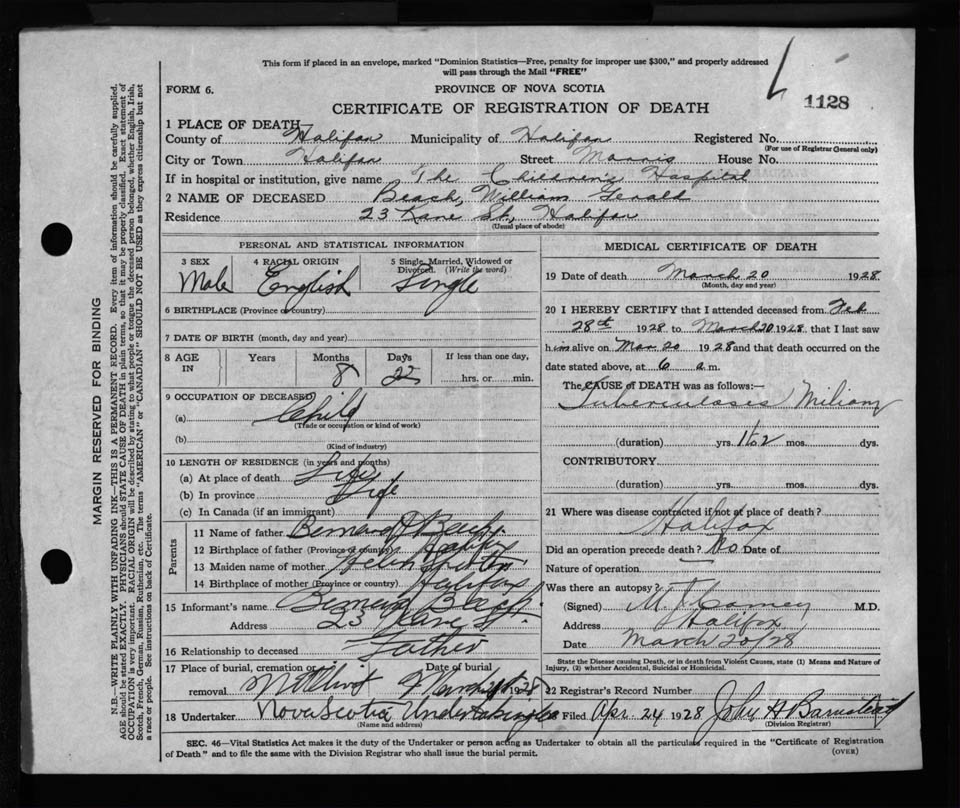 This form if placed in an envelope, marked "Dominion Statistics—Free, penalty for improper use $300," and properly addressed
will pass through the Mail "FREE"
FORM 6.
PROVINCE OF NOVA SCOTIA
1128
CERTIFICATE OF REGISTRATION OF DEATH
1 PLACE OF DEATH
County of Halifax Municipality of Halifax Registered No.
(For use of Registrar General only)
City or Town Halifax Street Morris House No.
If in hospital or institution, give name The Children's Hospital
2 NAME OF DECEASED Beach, William Gerald
Residence 23 Kane St., Halifax
(Usual place of abode)
PERSONAL AND STATISTICAL INFORMATION
3 SEX 4 RACIAL ORIGIN 5 Single, Married, Widowed or
Divorced. (Write the word)
Male English Single
6 BIRTHPLACE (Province or country)
7 DATE OF BIRTH (month, day and year)
8 AGE Years Months Days If less than one day,
IN 8 22 hrs. or min.
9 OCCUPATION OF DECEASED
(a) Child
(Trade or occupation or kind of work)
(b)
(Kind of industry)
10 LENGTH OF RESIDENCE (in years and months)
(a) At place of death Life
(b) In province Life
(c) In Canada (if an immigrant)
Parents
11 Name of father Bernard
12 Birthplace of father (Province or country)
13 Maiden name of mother Helen
14 Birthplace of mother (Province or country) Halifax
15 Informant's name Bernard
Address 23 Kane St.
16 Relationship to deceased Father
17 Place of burial, cremation or Date of burial
removal Mt Olivet March 1928
18 Undertaker Nova Scotia Undertaking Co
(Name and address)
MEDICAL CERTIFICATE OF DEATH
19 Date of death March 20 1928
(Month, day and year)
20 I HEREBY CERTIFY that I attended deceased from Feb
28th 1928 to March 20 1928, that I last saw
him alive on Mar 20 1928 and that death occurred on the
date stated above, at 6 a.m.
The CAUSE OF DEATH was as follows:—
Tuberculosis Miliary
(duration) yrs. 1 to 2 mos. dys.
CONTRIBUTORY
(duration) yrs. mos. dys.
21 Where was disease contracted if not at place of death?
Halifax
Did an operation precede death? No Date of
Nature of operation
Was there an autopsy?
(Signed) M.D.
Address Halifax
Date March 20/28
State the Disease causing Death, or in death from Violent Causes, state (1) Means and Nature of
Injury, (2) whether Accidental, Suicidal or Homicidal.
22 Registrar's Record Number
Filed Apr 24 1928 John A Barnstead
(Division Registrar)
SEC. 46—Vital Statistics Act makes it the duty of the Undertaker or person acting as Undertaker to obtain all the particulars required in the "Certificate of Registration
of Death" and to file the same with the Division Registrar who shall issue the burial permit.
(OVER)
MARGIN RESERVED FOR BINDING
N.B.—WRITE PLAINLY WITH UNFADING INK—THIS IS A PERMANENT RECORD. Every item of information should be carefully supplied.
AGE should be stated EXACTLY. PHYSICIANS should STATE CAUSE OF DEATH in plain terms, so that it may be properly classified. Exact statement of
OCCUPATION is very important. RACIAL ORIGIN will be described by stating to what people or tongue the deceased person belonged, whether English, Irish,
Scotch, French, German, Russian, Ruthenian, etc. The terms "AMERICAN" or "CANADIAN" SHOULD NOT BE USED as they express citizenship but not
a race or people. See instructions on back of Certificate.